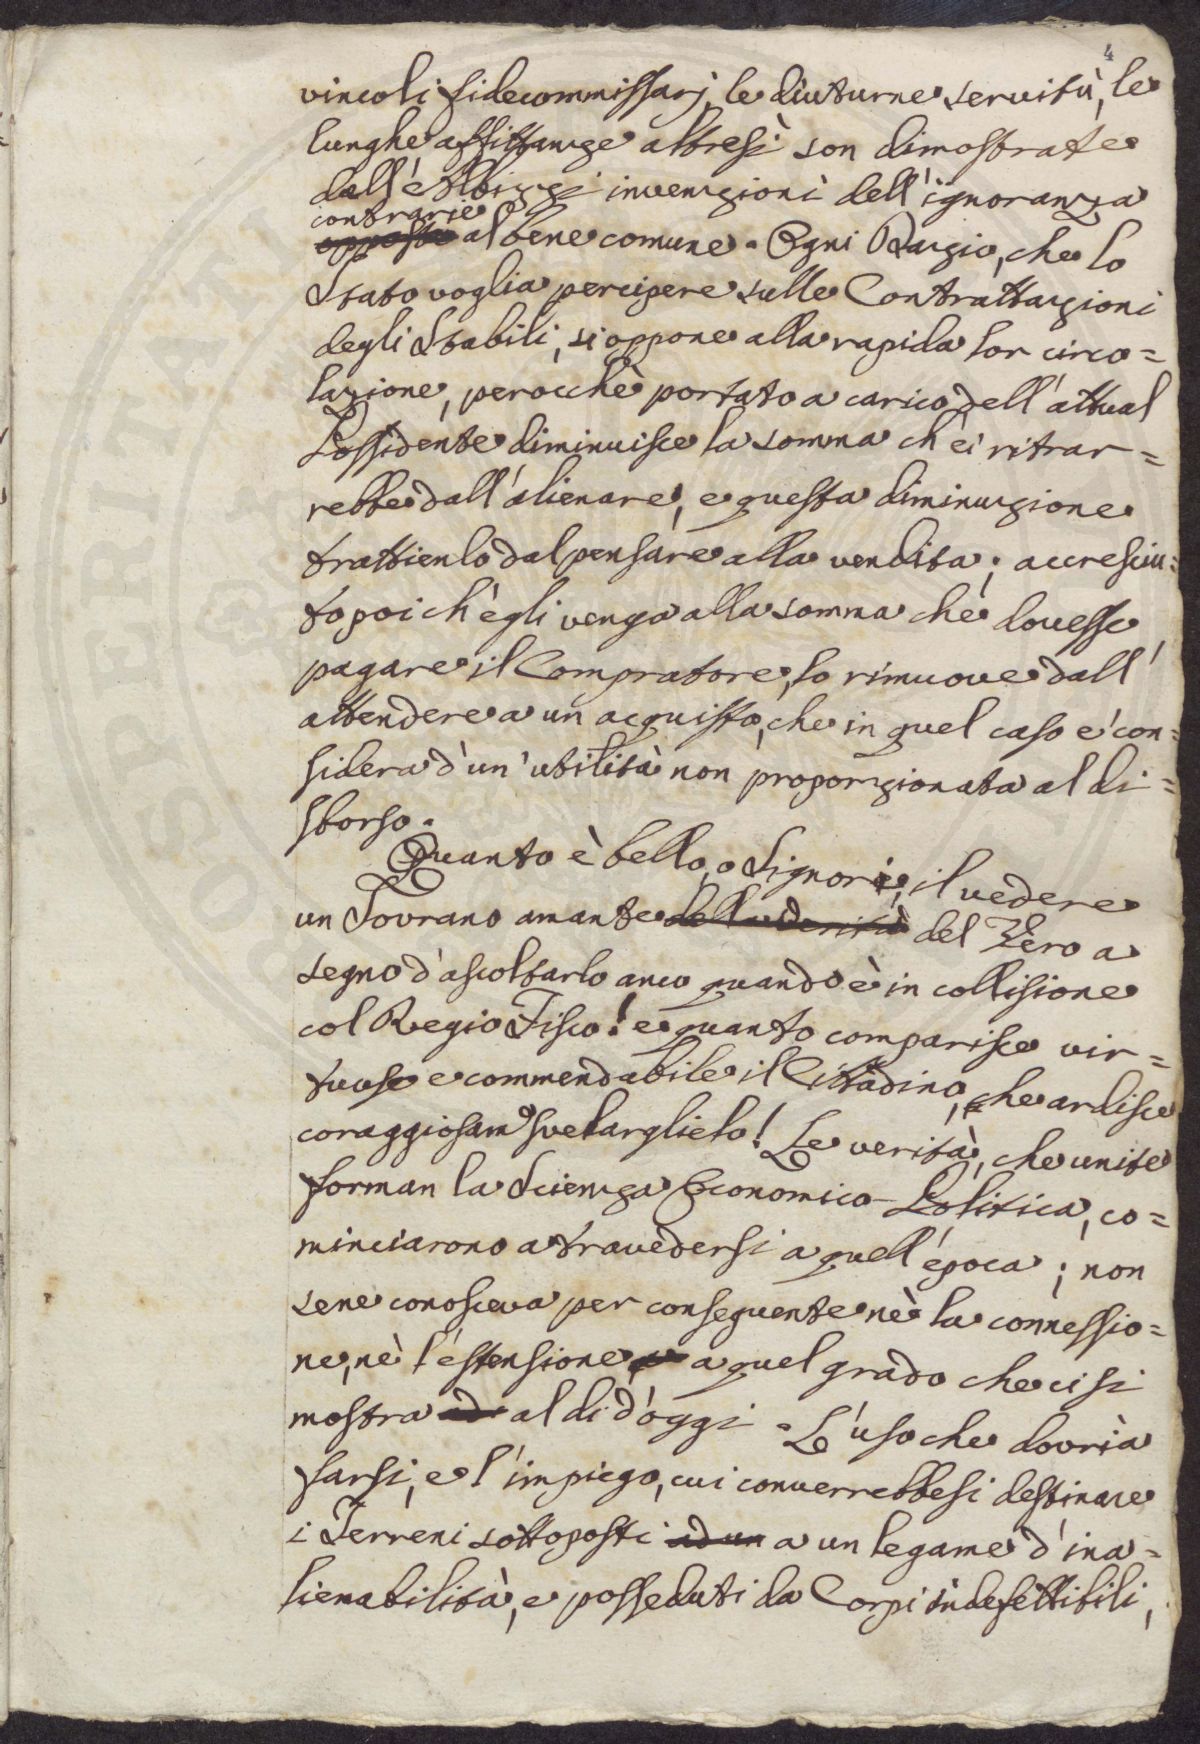 4
vincoli fidecommissarj, le diuturne servitù, le
lunghe affittanze altresì son dimostrate
dall'Albizzi invenzioni dell'ignoranza
contrarie
opposte al bene comune. Ogni Dazio, che lo
Stato voglia percipere sulle Contrattazioni
degli Stabili, si oppone alla rapida lor circo=
lazione, perocchè portato a carico dell'attual
Possidente diminuisce la somma ch'ei ritrar=
rebbe dall'alienare, e questa diminuzione
trattienlo dal pensare alla vendita; accresciu=
to poi ch'egli venga alla somma che dovesse
pagare il Compratore, lo rimuove dall'
attendere a un acquisto, che in quel caso e' con=
sidera d'un'utilità non proporzionata al di=
sborso.
Quanto è bello, o Signori, il vedere
un Sovrano amante della Verità del Vero a
segno d'ascoltarlo anco quando è in collisione
col Regio Fisco! e quanto comparisce vir=
tuoso e commendabile il Cittadino, che ardisce
coraggiosam.e svelarglielo! Le verità, che unite
forman la Scienza Economico-Politica, co=
minciarono a travedersi a quell'epoca; non
sene conosceva per conseguente nè la connessio=
ne, nè l'estensione, a quel grado che ci si
mostra ad al dì d'oggi. L'uso che dovrìa
farsi, e l'impiego, cui converrebbesi destinare
i Terreni sottoposti ad un a un legame d'ina=
lienabilità, e posseduti da Corpi indefettibili,